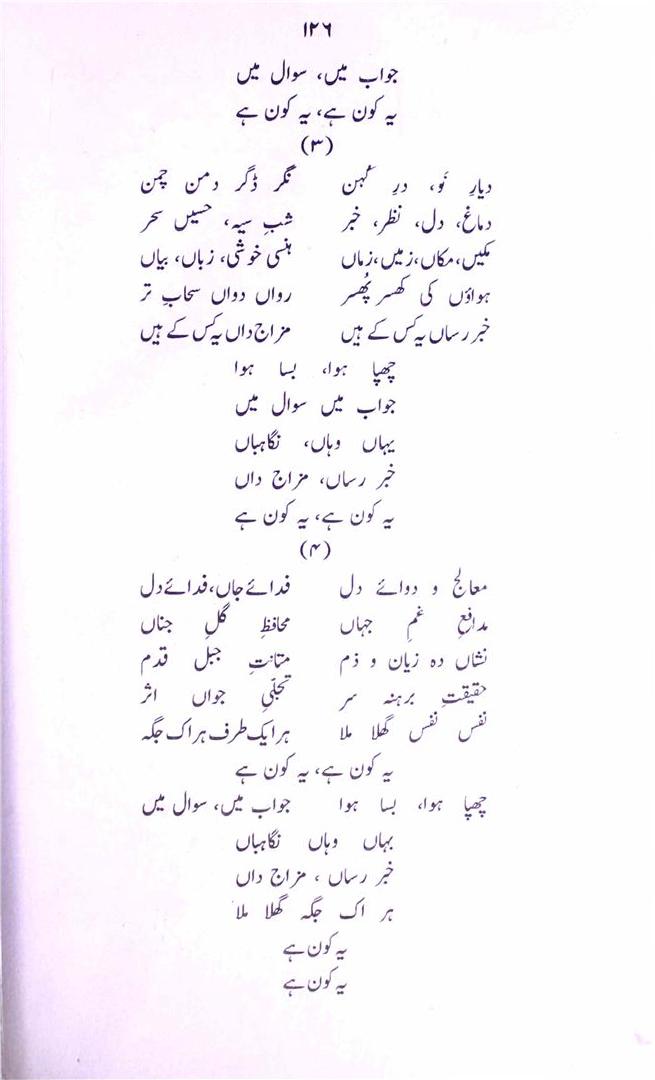 ۱۲۶
جواب میں، سوال میں
یہ کون ہے، یہ کون ہے
(۳)
دیارِ نَو، درِ کُہن نگر ڈگر دمن چمن
دماغ، دل، نظر، خبر شبِ سیہ، حسیں سحر
مکیں، مکاں، زمیں، زماں ہنسی خوشی، زباں، بیاں
ہواؤں کی کھسر پُھسر رواں دواں سحابِ تر
خبر رساں یہ کس کے ہیں مزاج داں یہ کس کے ہیں
چھپا ہوا، بسا ہوا
جواب میں سوال میں
یہاں وہاں، نگاہباں
خبر رساں، مزاج داں
یہ کون ہے، یہ کون ہے
(۴)
معالج و دوائے دل فدائے جاں، فدائے دل
مدافعِ غمِ جہاں محافظِ گلِ جناں
نشاں دہ زیان و ذم متانتِ جبل قدم
حقیقتِ برہنہ سر تجلّیِ جواں اثر
نفس نفس گھلا ملا ہر ایک طرف ہر اک جگہ
یہ کون ہے، یہ کون ہے
چھپا ہوا، بسا ہوا جواب میں، سوال میں
یہاں وہاں نگاہباں
خبر رساں ، مزاج داں
ہر اک جگہ گھلا ملا
یہ کون ہے
یہ کون ہے